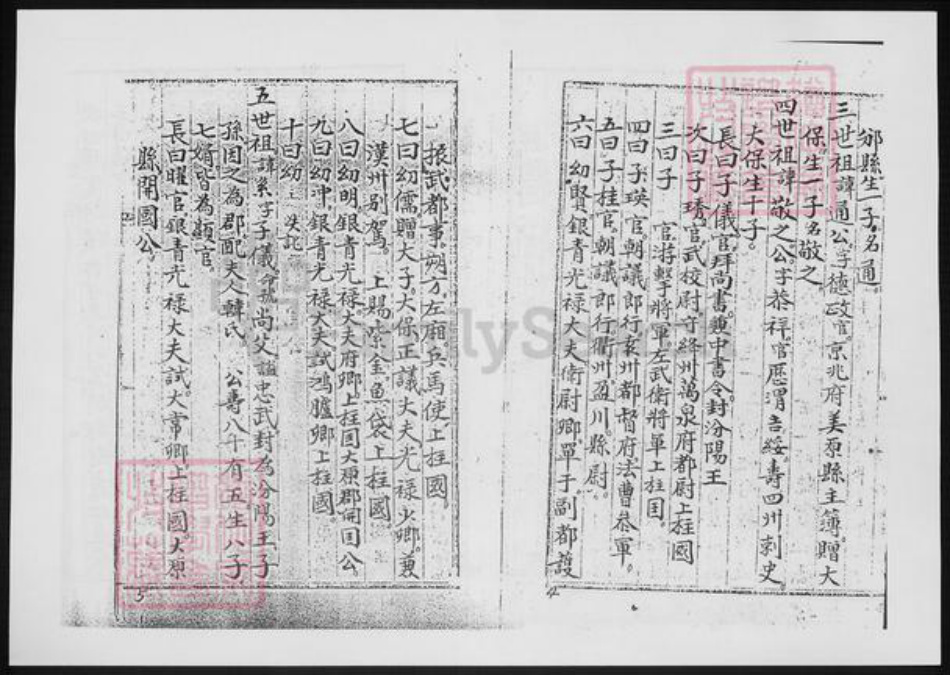 鄉縣生一子。名通。
三世祖諱通公。字德政。官京兆府美原縣主簿。贈大
保。生一子名敬之
四世祖諱敬之公。字恭祥。官歷渭吉綏壽四州刺史。
大保。生十子。
長曰子儀。官拜尚書兼中書令封汾陽王
次曰子琇。官武校尉守絳州萬泉府都尉上柱國
三曰子 官游擊將軍左武衛將軍上柱国。
四曰子瑛官朝議郎行袁州都督府法曹恭軍。
五曰子桂官朝議郎行衢州盈川縣尉。
六曰幼賢銀青光禄大夫衛尉卿單于副都護
振武都事。朔方左廂兵馬使上柱國。
七曰幼儒贈大子大保。正議大夫光禄少卿兼
漢州别駕。上賜紫金魚袋上柱國
八曰幼明。銀青光禄大夫府卿上柱国大原郡開国公。
九曰幼冲銀青光禄大夫試鴻臚卿上柱國。
十曰幼
五世祖諱 字子儀 尚父謚忠武封為汾陽王子
孫因之為郡配夫人韓氏 公壽八十有五。生八子
七婿皆為顯官。
長曰曜官銀青光禄大夫試大常卿上柱國。大原
縣開國公。
4
5